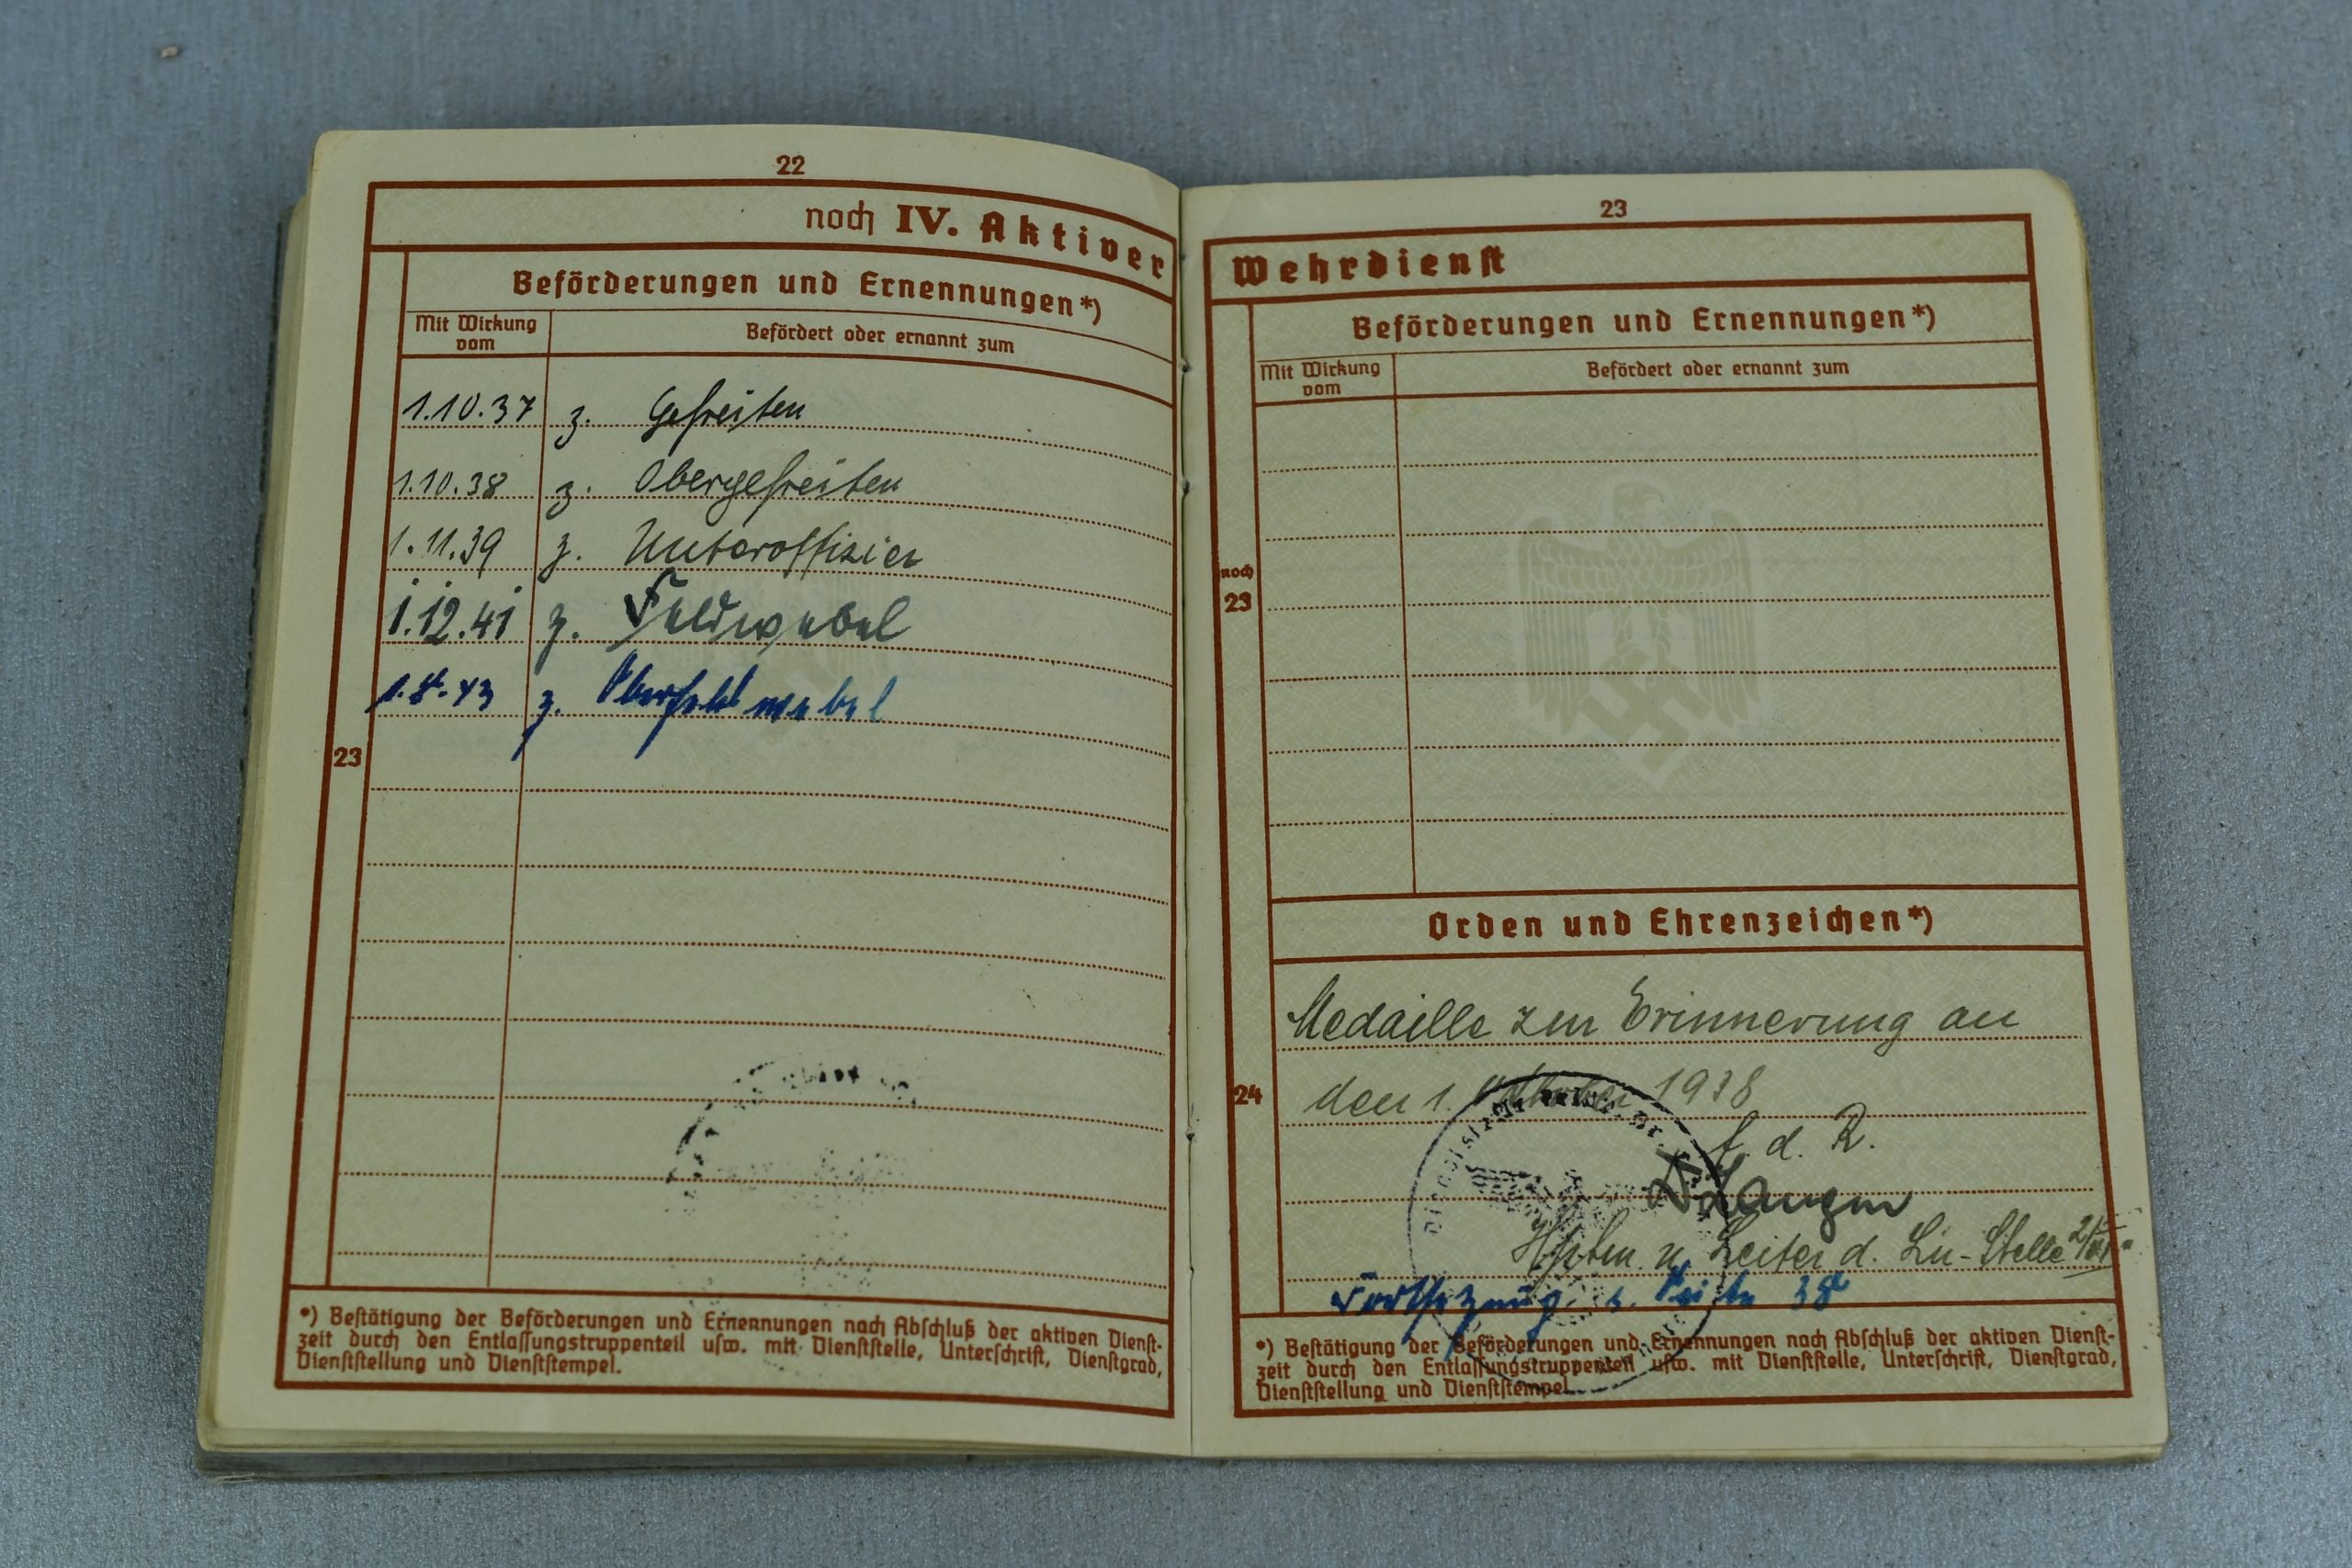 22
noch IV. Aktiver
Beförderungen und Ernennungen*)
Mit Wirkung vom
Befördert oder ernannt zum
1.10.37 z. Gefreiten
1.10.38 z. Obergefreiten
1.11.39 z. Unteroffizier
1.12.41 z. Feldwebel
z. Oberfeldwebel
23
*) Bestätigung der Beförderungen und Ernennungen nach Abschluß der aktiven Dienst-
zeit durch den Entlassungstruppenteil usw. mit Dienststelle, Unterschrift, Dienstgrad,
Dienststellung und Dienststempel.
23
Wehrdienst
Beförderungen und Ernennungen*)
Mit Wirkung vom
Befördert oder ernannt zum
noch
23
Orden und Ehrenzeichen*)
Medaille zur Erinnerung an
24
den 1. Oktober 1938
f. d. R.
Hptm. u. Leiter d. Lu-Stelle
Fortsetzung s. Seite 38
*) Bestätigung der Beförderungen und Ernennungen nach Abschluß der aktiven Dienst-
zeit durch den Entlassungstruppenteil usw. mit Dienststelle, Unterschrift, Dienstgrad,
Dienststellung und Dienststempel.